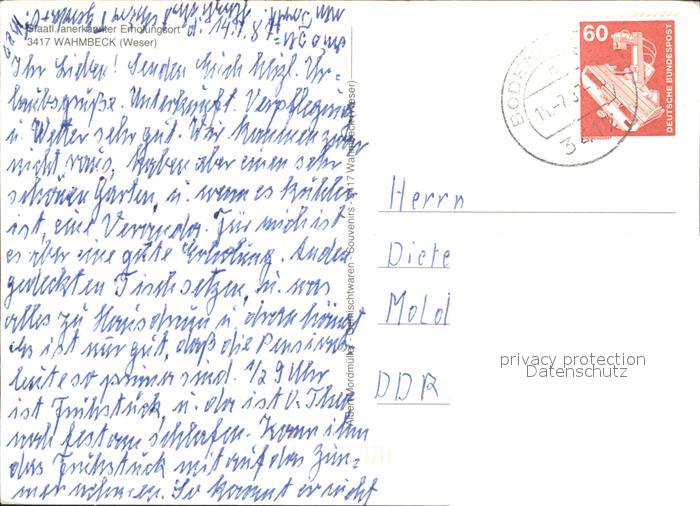 Staatl. anerkannter Erholungsort
3417 WAHMBECK (Weser)
d. 14.7.87
Ihr Lieben! Senden Euch herzl. Ur-
laubsgrüße. Unterkunft, Verpflegung
u. Wetter sehr gut. Wir kommen zwar
nicht raus, haben aber einen sehr
schönen Garten, u. wenn es kühler
ist, eine Veranda. Für mich ist
es aber eine gute Erholung. An den
gedeckten Tisch setzen, u. was
alles zu Haus drum u. dran hängt
Es ist nur gut, daß die Pensions-
leute so prima sind. 1/2 9 Uhr
ist Frühstück, u. da ist
noch fest am schlafen. Kann ihm
das Frühstück mit auf das Zim-
mer nehmen. So kommt er nicht
Souvenirs - 3417 Wahmbeck (Weser)
60
DEUTSCHE BUNDESPOST
BODEN
14.-7.87
341
Herrn
Diete
Mold
DDR
privacy protection
Datenschutz